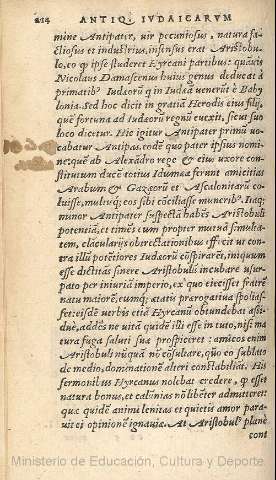 214 ANTIQ. IVDAICARVM
mine Antipater, uir pecuniosus, natura fa-
ctiosus et industrius, infensus erat Aristobu-
lo, eo qɜ ipse studeret Hyrcani partibus: quāuis
Nicolaus Damascenus huius genus deducat à
primatibꝰ Iudæorū q in Iudæā uenerūt è Baby
lonia. Sed hoc dicit in gratiā Herodis eius filij,
quē fortuna ad Iudæorū regnū euexit, sicut suo
loco dicetur. Hic igitur Antipater primū uo-
cabatur Antipas, eodē quo pater ipsius nomi-
ne: quē ab Alexādro rege & eiu uxore con-
stitutum ducē totius Idumææ ferunt amicitias
Arabum & Gazæorū et Ascalonitarū co-
luisse, multisqɜ eos sibi cōciliasse muneribꝰ. Itaqɜ
minor Antipater suspectā habēs Aristobuli
potentiā, et timēs eum propter mutuā simulta-
tem, clāculariis obtrectationibus efficit ut con-
tra illū potētiores Iudæorū cōspirarēt, iniquum
esse dictitās sinere Aristobulū incubare usur-
pato per iniuriā imperio, ex quo eiecisset fratrē
natu maiorē, eumqɜ ætatis prærogatiua spolias-
set: eisdē uerbis etiā Hyrcanū obtundebat assi-
due, addēs ne uitā quidē illi esse in tuto, nisi ma
tura fuga saluti suæ prospiceret: amicos enim
Aristobuli nūquā nō cōsultare, quo eo sublato
de medio, dominationē alteri constabiliāt. His
sermonibus Hyrcanus nolebat credere, qɜ esset
natura bonus, et calūnias nō libēter admitteret:
quæ quidē animi lenitas et quietis amor para-
uit ei opinionē ignauiæ. At Aristobulꝰ planè
cont
Ministerio de Educación, Cultura y Deporte